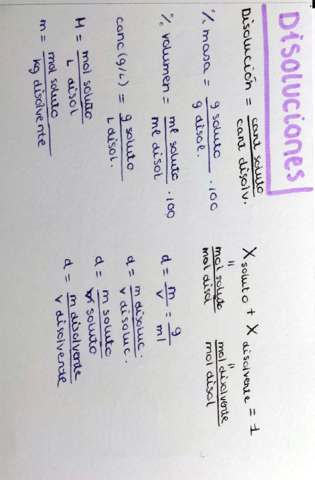 Disoluciones
Disolución = cant soluto / cant disolv.
% masa = g soluto / g disol. · 100
% volumen = ml soluto / ml disol · 100
conc (g/L) = g soluto / L disol.
M = mol soluto / L disol
m = mol soluto / kg disolvente
X soluto + X disolvente = 1
" "
mol soluto / mol disol mol disolvente / mol disol
d = m / v = g / ml
d = m disoluc. / v disoluc.
d = m soluto / v soluto
d = m disolvente / v disolvente